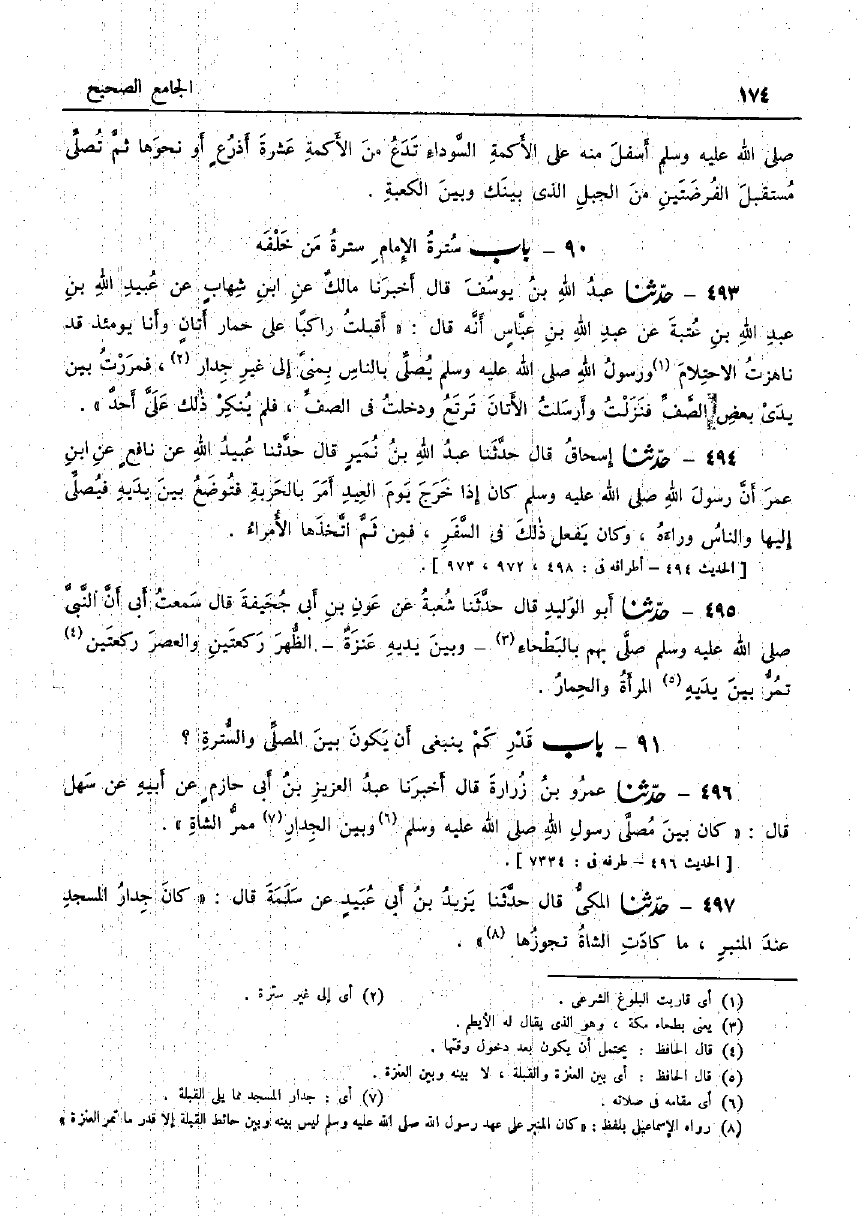 ١٧٤ الجامع الصحيح
صلى الله عليه وسلم أَسفلَ منه على الأَكمةِ السَّوداءِ تَدَعُ منَ الأَكمةِ عَشرةَ أَذرُعٍ أَو نحوَها ثمَّ تُصلِّى
مُستقبلَ الفُرضَتَينِ منَ الجبلِ الذى بينَك وبينَ الكعبةِ .
٩٠ – باب سُترةُ الإِمامِ سترةُ مَن خَلْفَه
٤٩٣ – حدّثنا عبدُ اللهِ بنُ يوسُفَ قال أَخبرَنا مالكٌ عنِ ابنِ شِهابٍ عن عُبيدِ اللهِ بنِ
عبدِ اللهِ بنِ عُتبةَ عن عبدِ اللهِ بنِ عبَّاسٍ أَنَّه قال : « أَقبلتُ راكبًا على حمار أَتانٍ وأَنا يومئذ قد
ناهزتُ الاحتِلامَ (١) ورسولُ اللهِ صلى الله عليه وسلم يُصلِّى بالناسِ بِمنىً إلى غيرِ جِدار (٢) ، فمرَرْتُ بين
يدَىْ بعضِ الصَّفِّ فنَزَلْتُ وأَرسَلتُ الأَتانَ تَرتَعُ ودخلتُ فى الصفِّ ، فلم يُنكِرْ ذٰلك عَلَىَّ أَحدٌ » .
٤٩٤ – حدّثنا إسحاقُ قال حدَّثنا عبدُ اللهِ بنُ نُمَيرٍ قال حدَّثنا عُبيدُ اللهِ عن نافعٍ عنِ ابنِ
عمرَ أَنَّ رسولَ اللهِ صلى الله عليه وسلم كان إذا خَرَجَ يَومَ العِيدِ أَمَرَ بالحَرْبةِ فتُوضَعُ بينَ يدَيهِ فيُصلِّى
إليها والناسُ وراءَهُ ، وكان يَفعل ذٰلكَ فى السَّفَرِ ، فمِن ثَمَّ اتَّخذَها الأُمراءُ .
[ الحديث ٤٩٤ – أطرافه فى : ٤٩٨ ، ٩٧٢ ، ٩٧٣ ] .
٤٩٥ – حدّثنا أَبو الوَليدِ قال حدَّثنا شُعبةُ عن عَونِ بنِ أَبي جُحَيفةَ قال سَمعتُ أَبى أَنَّ النَّبىَّ
صلى الله عليه وسلم صلَّى بهم بالبَطْحاءِ (٣) – وبينَ يدَيهِ عَنزَةٌ – الظُّهرَ رَكعتَينِ والعصرَ ركعتَين (٤)
تمُرُّ بينَ يدَيهِ (٥) المرأَةُ والحِمارُ .
٩١ – باب قَدْرِ كَمْ ينبغى أَن يَكونَ بينَ المصلِّى والسُّترةِ ؟
٤٩٦ – حدّثنا عمرُو بنُ زُرارةَ قال أَخبرَنا عبدُ العزيزِ بنُ أَبى حازمٍ عن أَبيهِ عن سَهل
قال : « كان بينَ مُصلَّى رسولِ اللهِ صلى الله عليه وسلم (٦) وبين الجِدارِ (٧) ممرُّ الشاةِ » .
[ الحديث ٤٩٦ – طرفه فى : ٧٣٣٤ ] .
٤٩٧ – حدّثنا المكىُّ قال حدَّثنا يَزيدُ بنُ أَبي عُبَيدٍ عن سَلَمةَ قال : « كانَ جِدارُ المسجدِ
عندَ المنبرِ ، ما كادَتِ الشاةُ تجوزُها (٨) » .
(١) أى قاربت البلوغ الشرعى . (٢) أى إلى غير سترة .
(٣) يعنى بطحاء مكة ، وهو الذى يقال له الأبطح .
(٤) قال الحافظ : يحتمل أن يكون بعد دخول وقتها .
(٥) قال الحافظ : أى بين العنزة والقبلة ، لا بينه وبين العنزة .
(٦) أى مقامه فى صلاته . (٧) أى : جدار المسجد مما يلى القبلة .
(٨) رواه الإسماعيلى بلفظ : « كان المنبر على عهد رسول الله صلى الله عليه وسلم ليس بينه وبين حائط القبلة إلا قدر ما تمر العنزة »